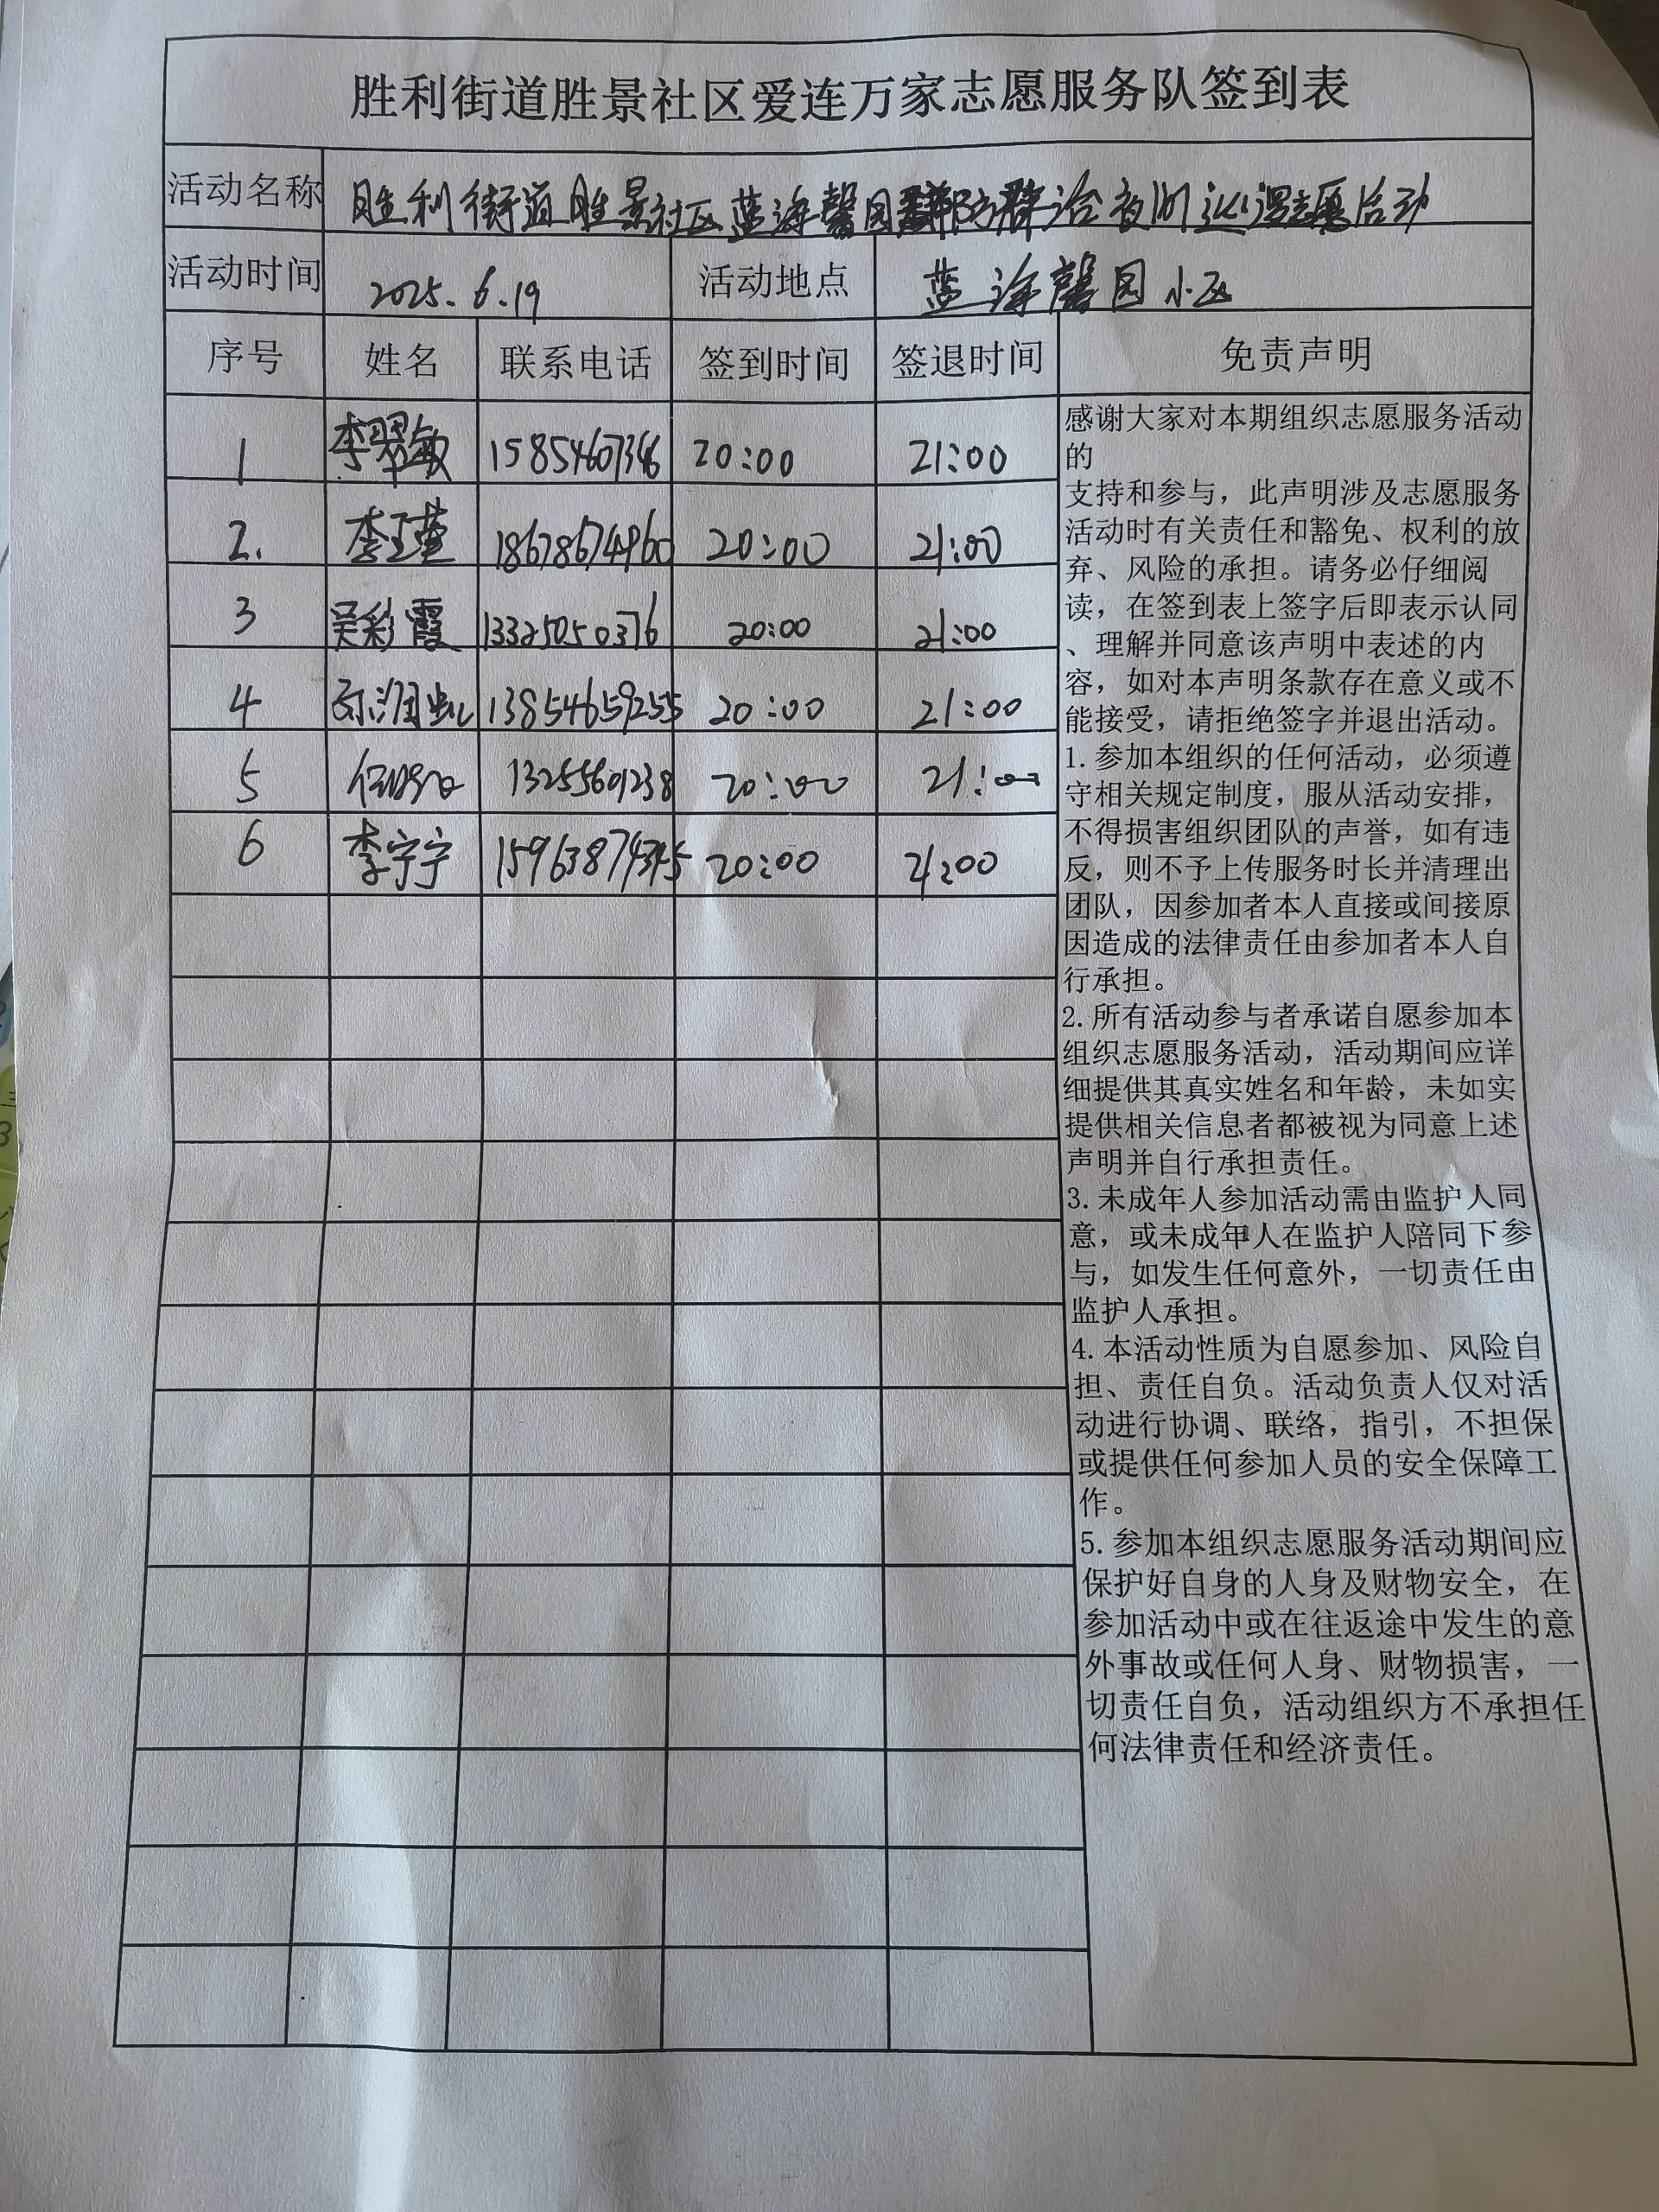 胜利街道胜景社区爱连万家志愿服务队签到表
活动名称 胜利街道胜景社区蓝海馨园群防群治夜间巡逻志愿活动
活动时间 2025.6.19 活动地点 蓝海馨园小区
序号 姓名 联系电话 签到时间 签退时间 免责声明
1 李翠敏 15854607346 20:00 21:00
2. 李玉莲 18678674960 20:00 21:00
3 吴彩霞 13325050376 20:00 21:00
4 13854659255 20:00 21:00
5 13255601238 20:00 21:00
6 李宁宁 15963874345 20:00 21:00
感谢大家对本期组织志愿服务活动
的
支持和参与，此声明涉及志愿服务
活动时有关责任和豁免、权利的放
弃、风险的承担。请务必仔细阅
读，在签到表上签字后即表示认同
、理解并同意该声明中表述的内
容，如对本声明条款存在意义或不
能接受，请拒绝签字并退出活动。
1.参加本组织的任何活动，必须遵
守相关规定制度，服从活动安排，
不得损害组织团队的声誉，如有违
反，则不予上传服务时长并清理出
团队，因参加者本人直接或间接原
因造成的法律责任由参加者本人自
行承担。
2.所有活动参与者承诺自愿参加本
组织志愿服务活动，活动期间应详
细提供其真实姓名和年龄，未如实
提供相关信息者都被视为同意上述
声明并自行承担责任。
3.未成年人参加活动需由监护人同
意，或未成年人在监护人陪同下参
与，如发生任何意外，一切责任由
监护人承担。
4.本活动性质为自愿参加、风险自
担、责任自负。活动负责人仅对活
动进行协调、联络，指引，不担保
或提供任何参加人员的安全保障工
作。
5.参加本组织志愿服务活动期间应
保护好自身的人身及财物安全，在
参加活动中或在往返途中发生的意
外事故或任何人身、财物损害，一
切责任自负，活动组织方不承担任
何法律责任和经济责任。